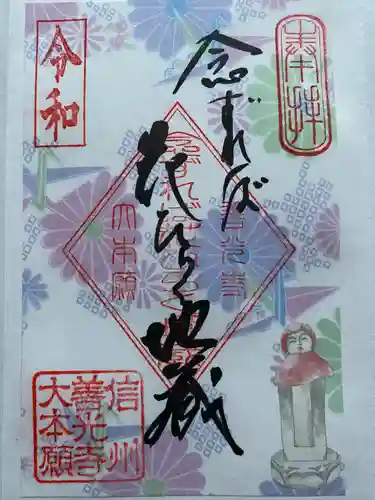 奉拝
念ずれば
花ひらく地蔵
令和
善光寺
大本願
信州
善光寺
大本願